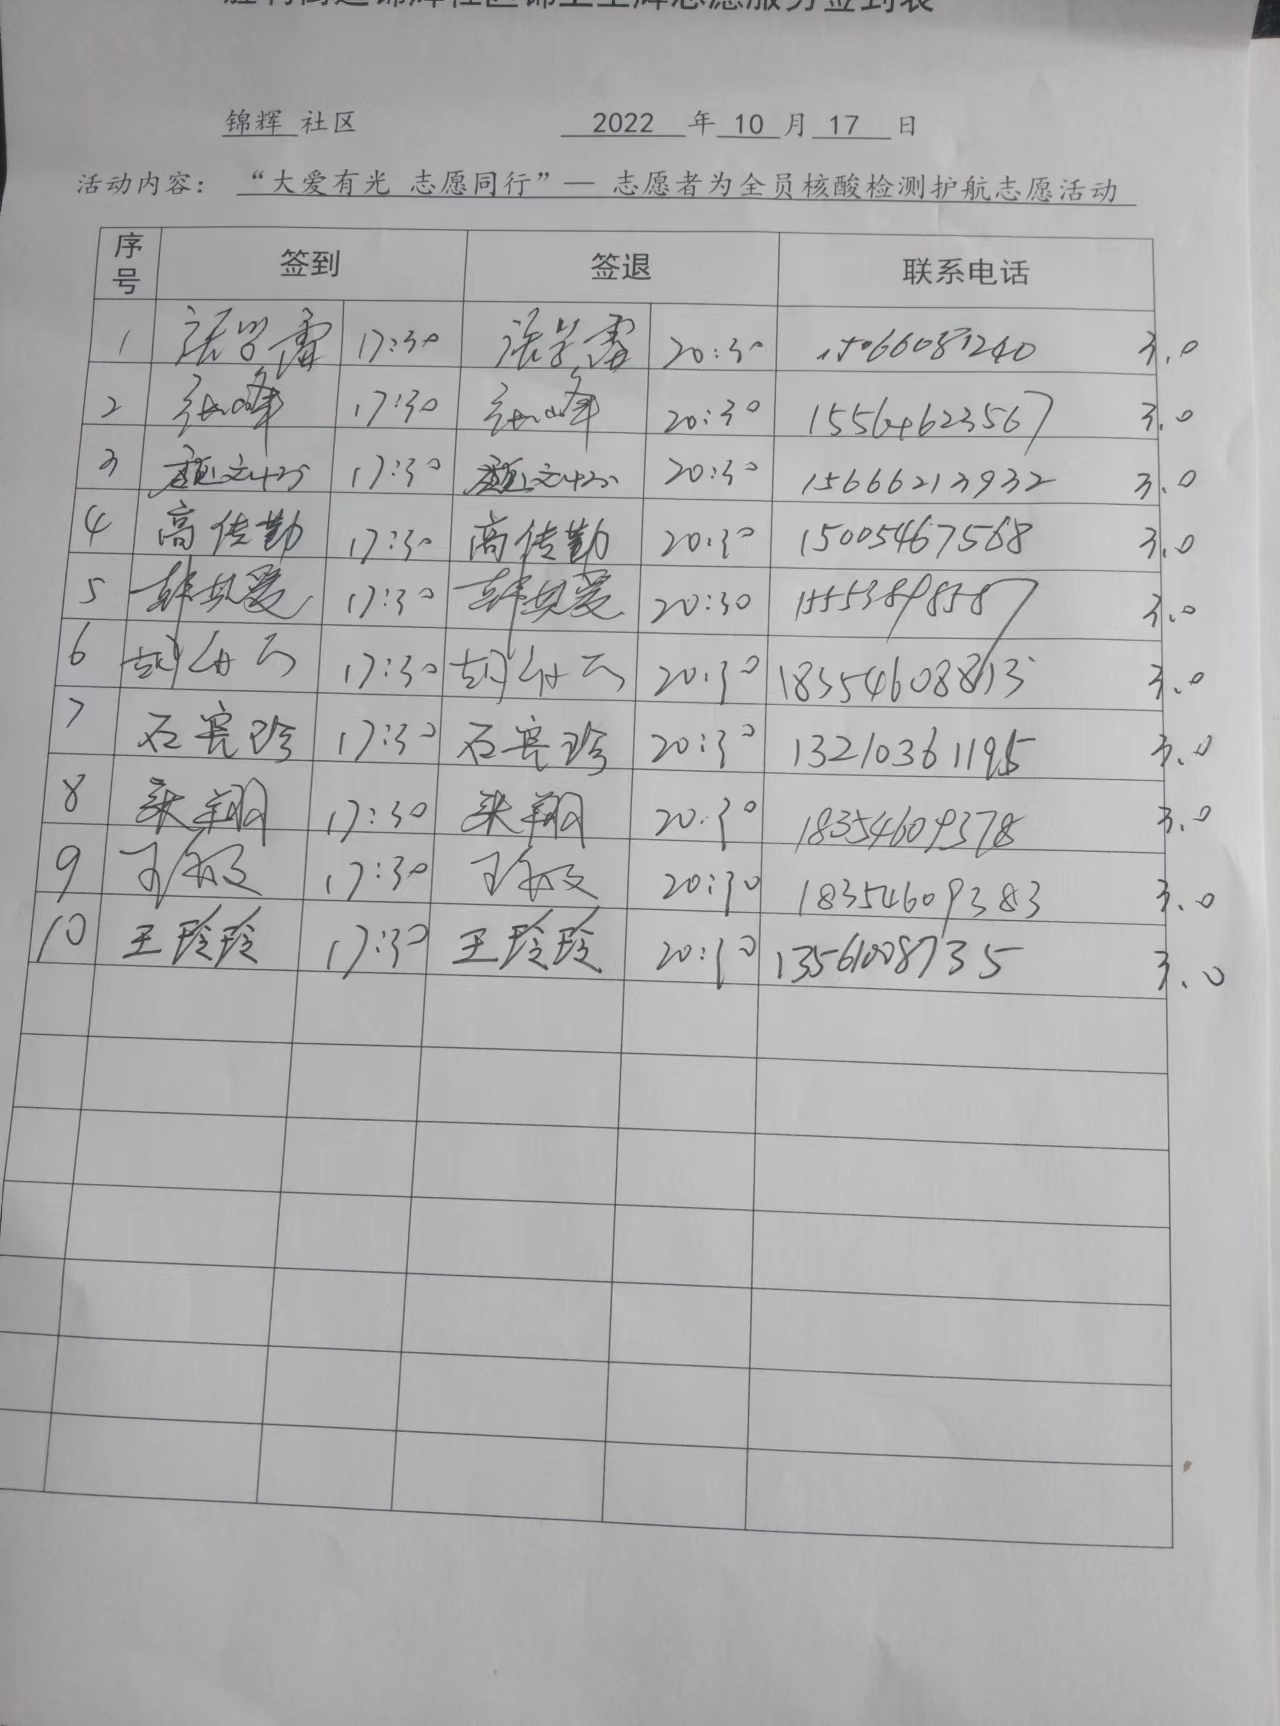 锦辉 社区 2022 年 10 月 17 日
活动内容： “大爱有光 志愿同行”— 志愿者为全员核酸检测护航志愿活动
序号 签到 签退 联系电话
1 17:30 20:30 3.0
2 17:30 20:30 15564623567 3.0
3 17:30 20:30 15666213932 3.0
4 高传勤 17:30 高传勤 20:30 15005467568 3.0
5 17:30 20:30 15553898587 3.0
6 17:30 20:30 18354608813 3.0
7 石宾珍 17:30 石宾珍 20:30 13210361195 3.0
8 张翔 17:30 张翔 20:30 18354609378 3.0
9 17:30 20:30 18354609383 3.0
10 王玲玲 17:30 王玲玲 20:30 13561008735 3.0